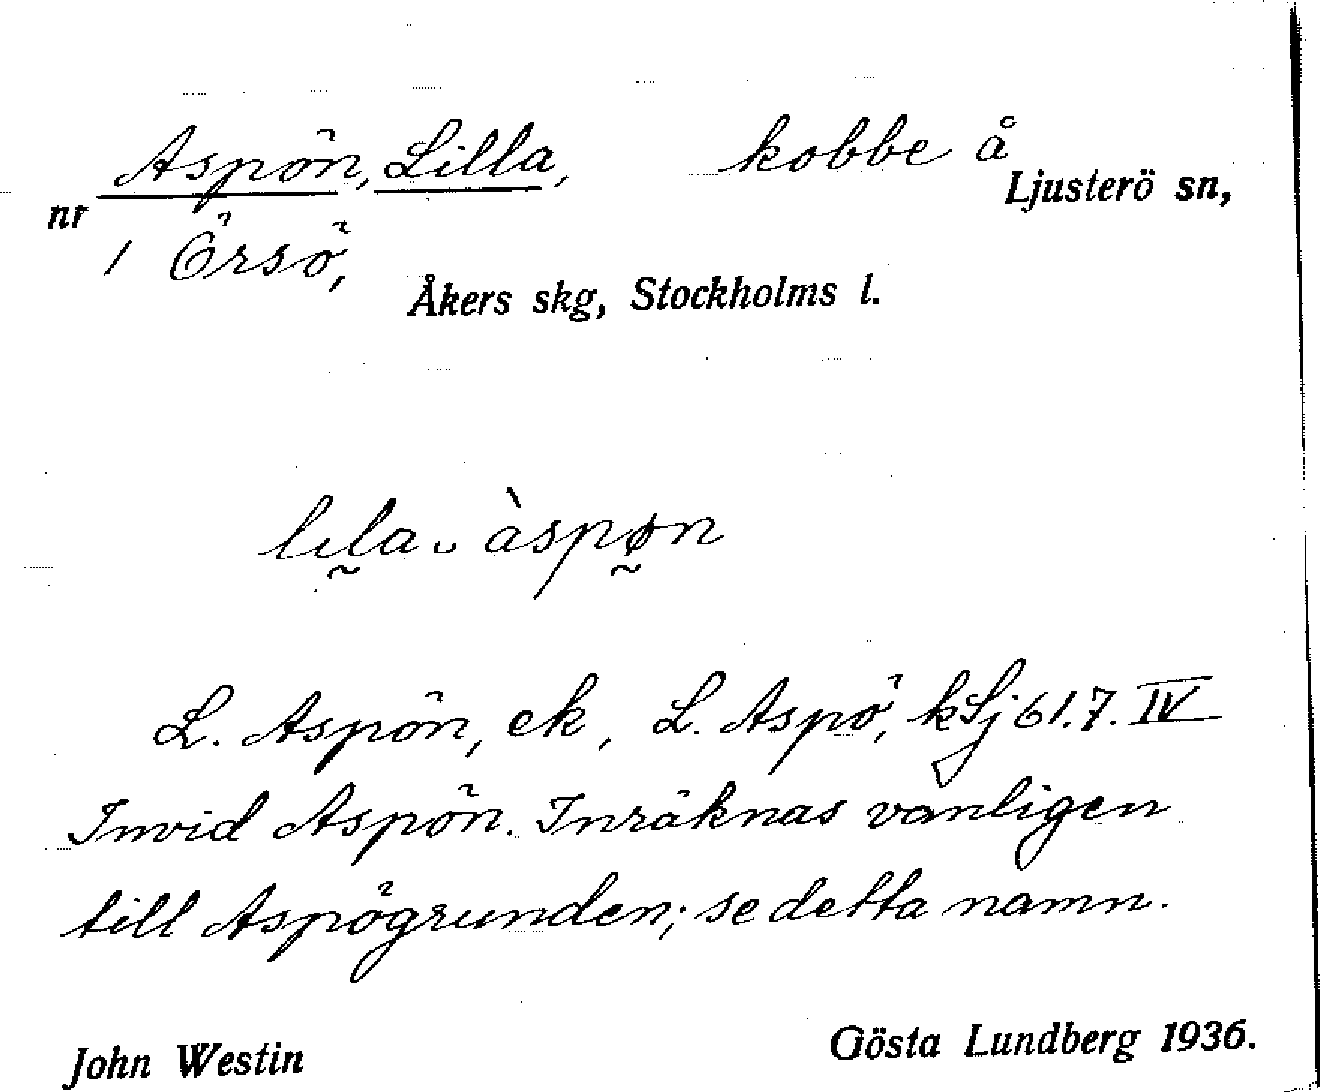 Aspön, Lilla, kobbe å
Ljusterö sn,
nr
1 Örsö,
Åkers skg, Stockholms l.
lıla ᴗ àspøn
L. Aspön, ek, L. Aspö, kSj 61.7. IV
Invid Aspön. Inräknas vanligen
till Aspögrunden; se detta namn.
John Westin Gösta Lundberg 1936.